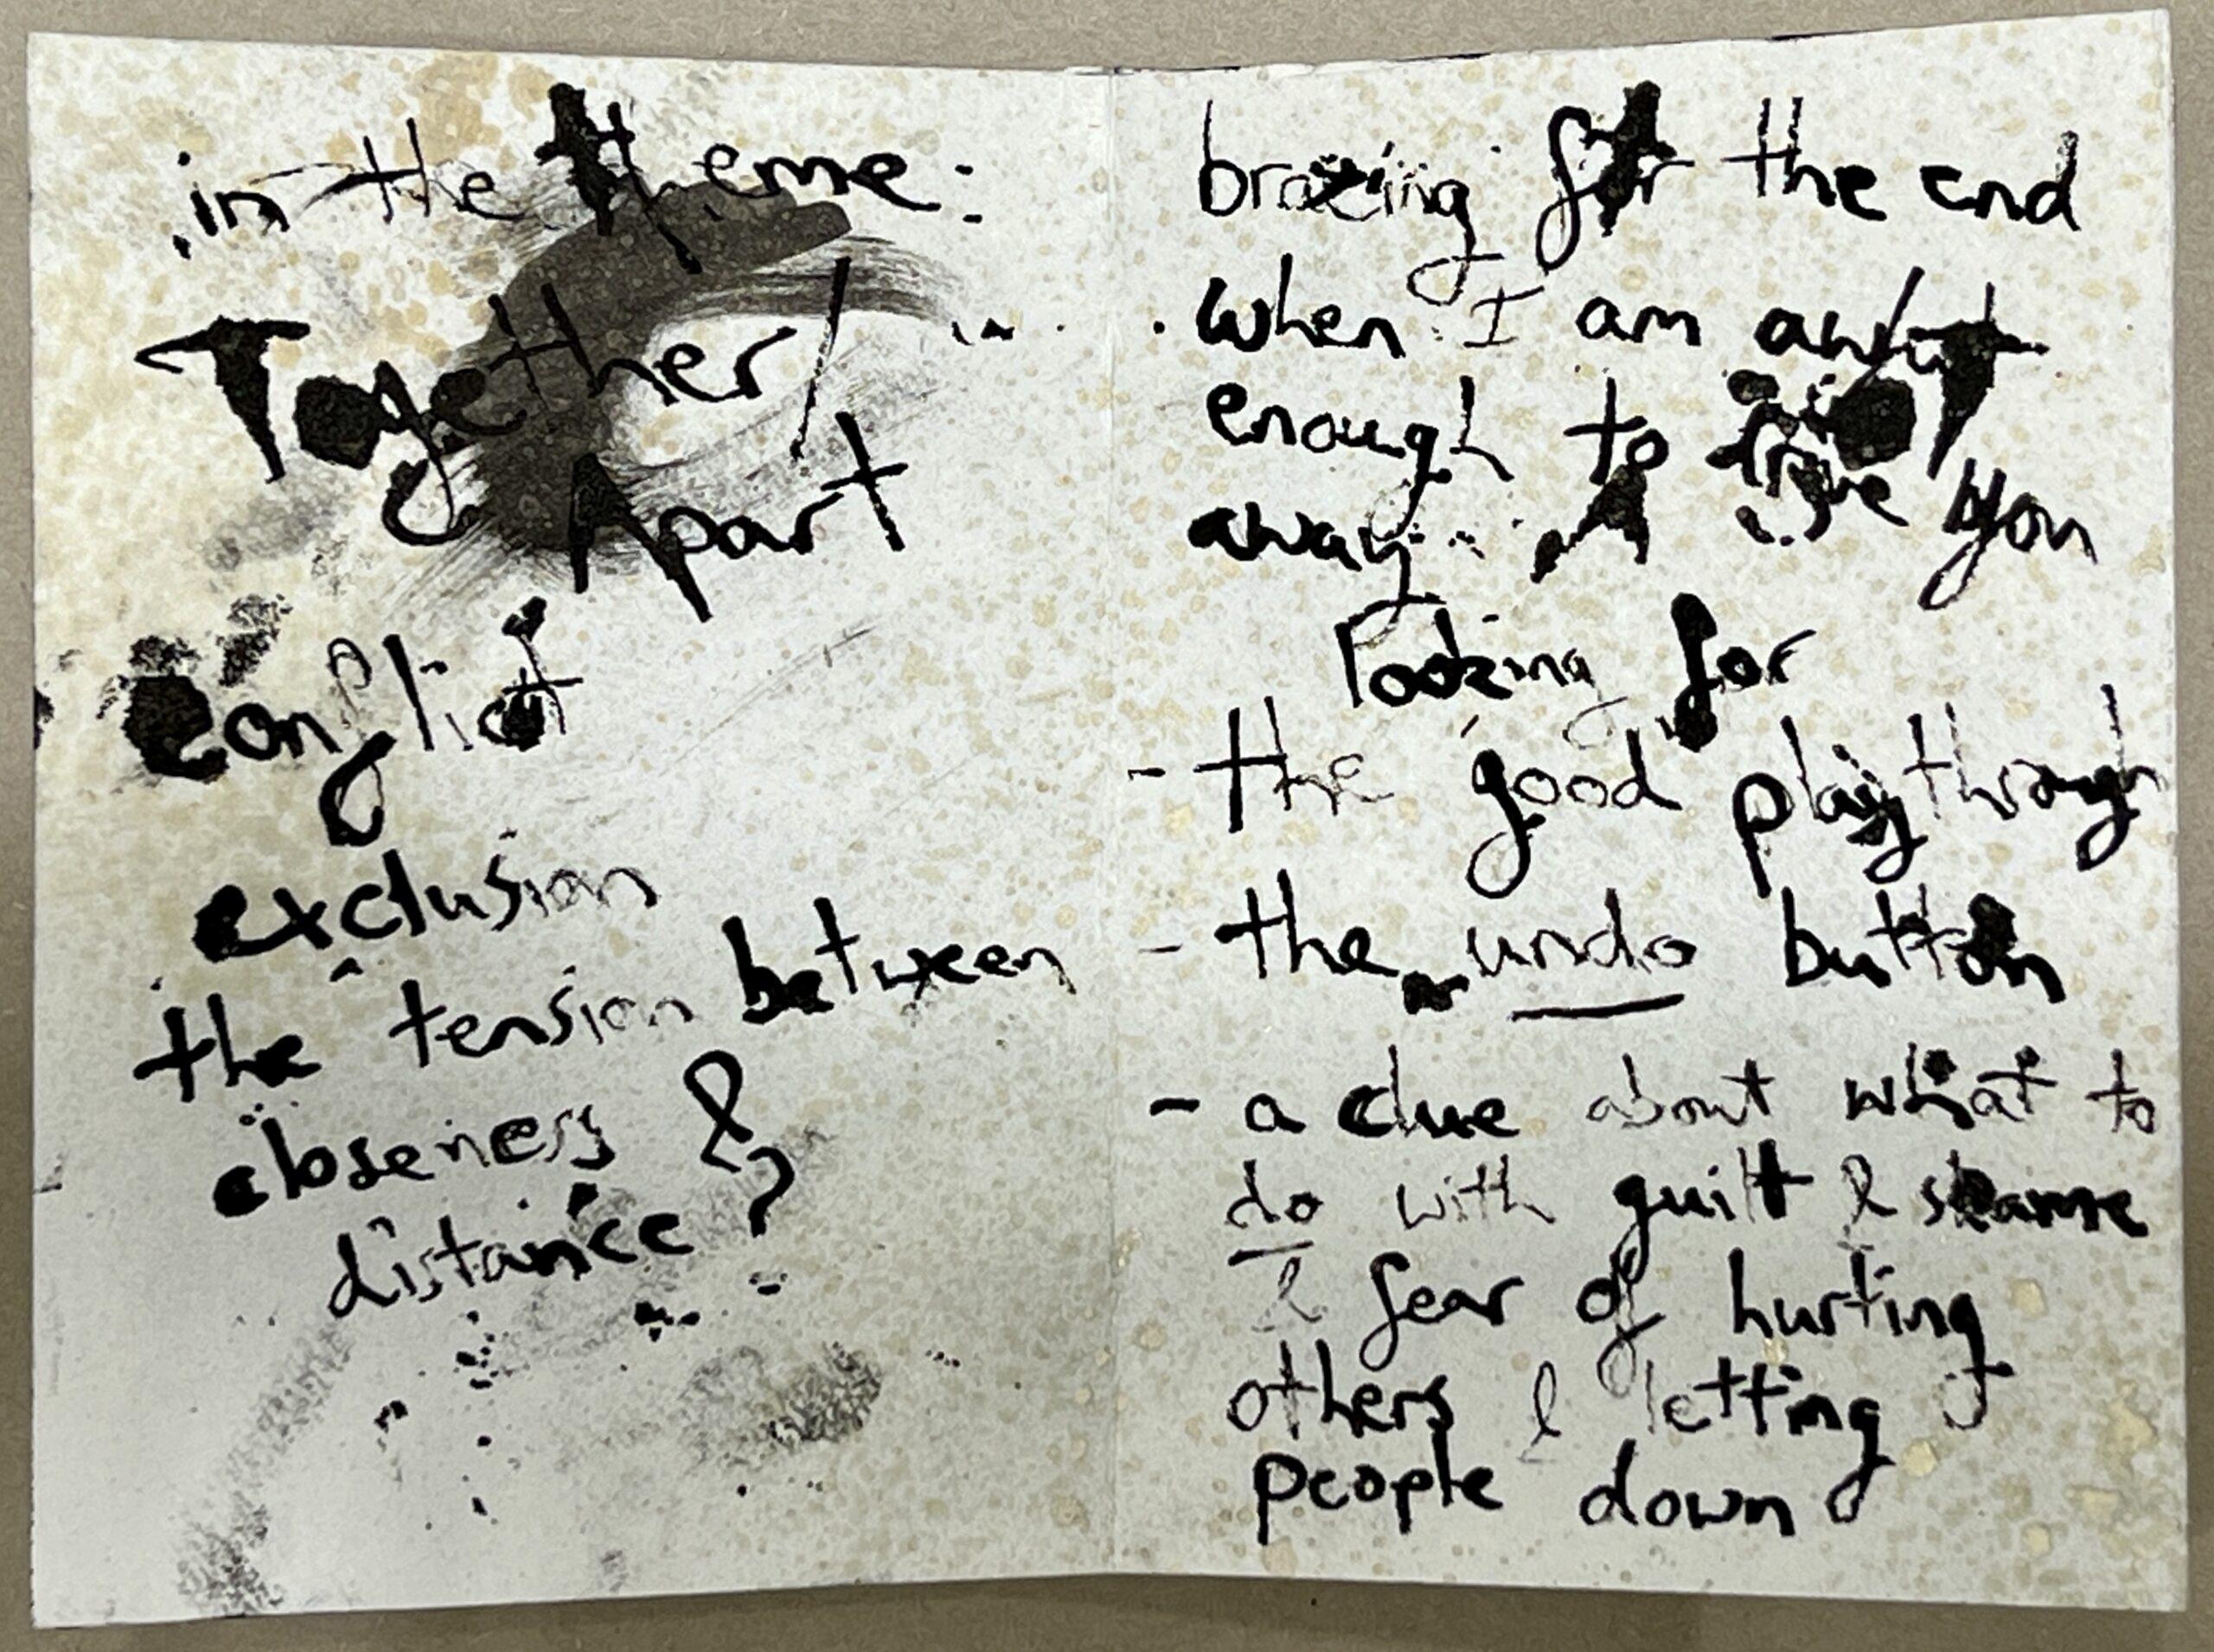 in the theme:
Together/
Apart
conflict
exclusion
the tension between
closeness &
distance?
bracing for the end
when I am awful
enough to drive you
away
looking for
- the good playthrough
- the undo button
- a clue about what to
do with guilt & shame
& fear of hurting
others & letting
people down